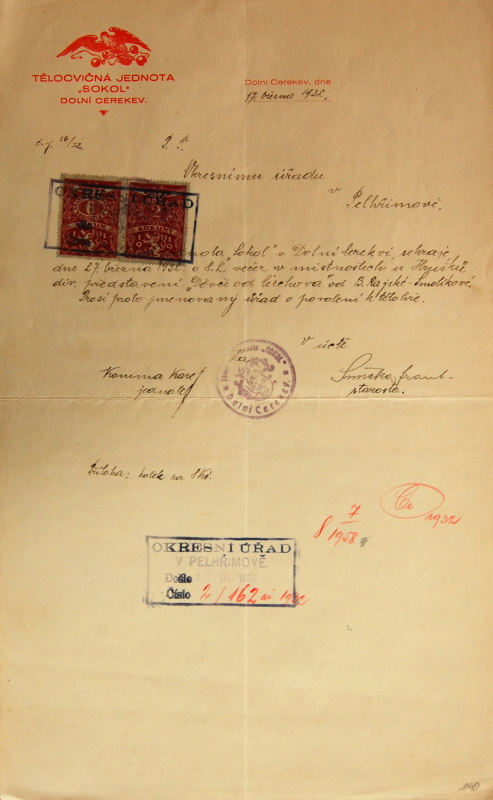 TĚLOCVIČNÁ JEDNOTA
„SOKOL"
DOLNÍ CEREKEV.
Dolní Cerekev, dne
17. března 1932.
č. j. 56/32
P. T.
Okresnímu úřadu
v
Pelhřimově.
OKRESNÍ ÚŘAD
6 2
KORUNY
Došlo
Číslo
nota „Sokol" v Dolní Cerekvi, sehraje
dne 27. března 1932 o 8. h. večer v místnostech u Hrušků
div. představení „Děvče od Čerchova" od B. Rajské-Smolíkové.
Prosí proto jmenovaný úřad o povolení k této hře.
V úctě
Za
Komma Karel
jednatel
"SOKOL"
Dolní Cerekev.
Smrčka Frant.
starosta.
Příloha: kolek na 8 Kč.
7
8 1958
1932
OKRESNÍ ÚŘAD
V PELHŘIMOVĚ.
Došlo III. 1932
Číslo 2/162 ai 1932
140